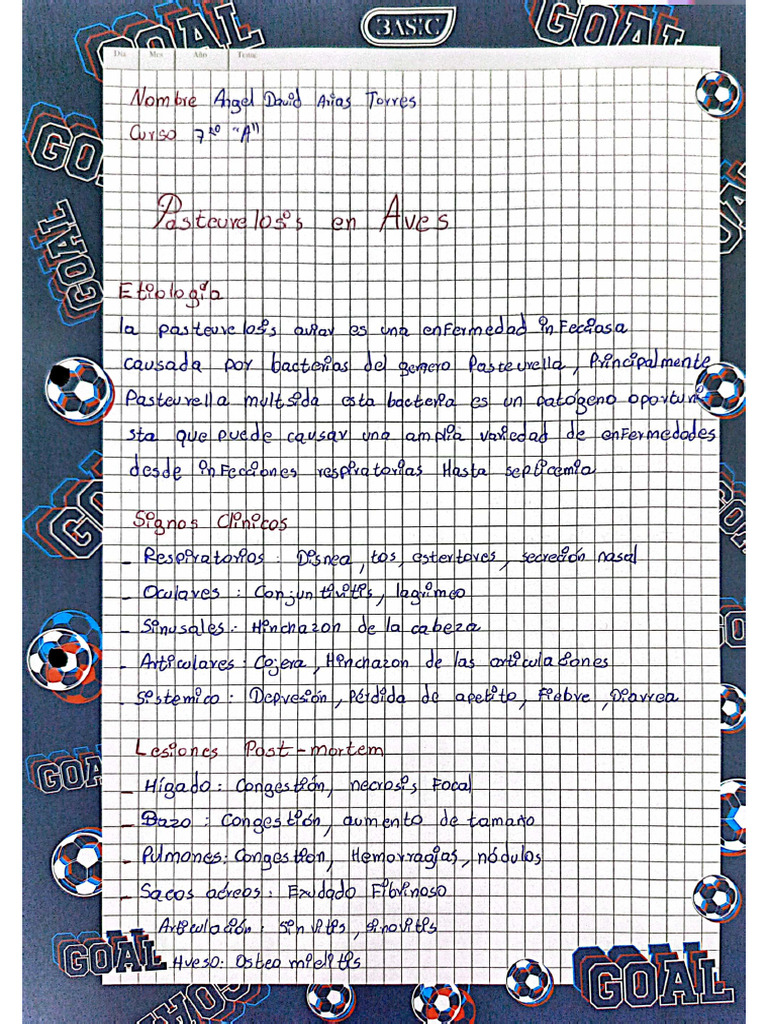 BASIC
GOAL
GOAL
Dia Mes Año Tema
Nombre Angel David Arias Torres
Curso 7mo "A"
GOAL
GOAL
Pasteurelosis en Aves
Etiología
la pasteurelosis aviar es una enfermedad infecciosa
causada por bacterias del genero Pasteurella, Principalmente
Pasteurella multsida esta bacteria es un patógeno oportuni-
sta que puede causar una amplia variedad de enfermedades
desde infecciones respiratorias Hasta septicemia
Signos Clinicos
- Respiratorios: Disnea, tos, estertores, secreción nasal
- Oculares: Conjuntivitis, lagrimeo
- Sinusales: Hinchazon de la cabeza
- Articulares: Cojera, Hinchazon de las articulaciones
- Sistemico: Depresión, Pérdida de apetito, Fiebre, Diarrea
Lesiones Post-mortem
- Hígado: Congestión, necrosis Focal
- Bazo: Congestión, aumento de tamaño
- Pulmones: Congestion, Hemorragias, nódulos
- Sacos aéreos: Exudado Fibrinoso
Articulación: Sinvitis, sinovitis
Hueso: Osteomielitis
GOAL
GOAL
GOAL